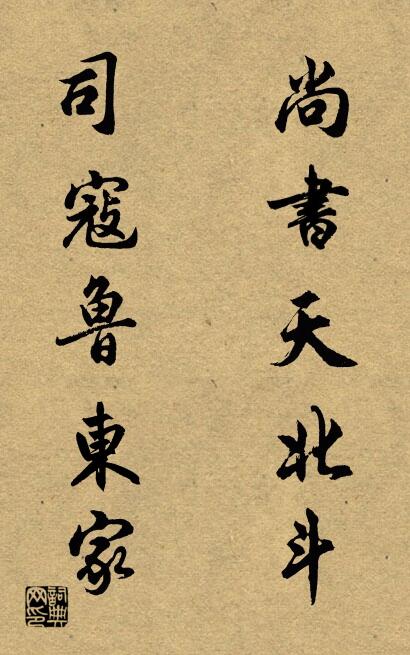 尚書天北斗
司寇魯東家
詞典網印